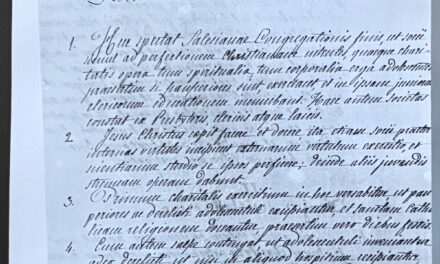 1. Huc spectat Salesianae Congregationis finis, ut socii
simul ad perfectionem Christianam nitentes, quaeque chari-
tatis opera tum spiritualia, tum corporalia erga adolescentes
praesertim si pauperiores sint, exerceant, et in ipsam juniorum
clericorum educationem incumbant. Haec autem Societas
constat ex Presbyteris, clericis atque laicis.
2. Jesus Christus cepit facere et docere, ita etiam socii praeter
internas virtutes incipient externarum virtutum exercitio, et
scientiarum studio se ipsos perficere; deinde aliis juvandis
strenuam operam dabunt.
3. Primum charitatis exercitium in hoc versabitur, ut pau-
periores ac derelicti adolescentuli excipiantur, et sanctam Catho-
licam religionem doceantur, praesertim vero diebus festis.
4. Cum autem saepe contingat, ut adolescentuli inveniantur
adeo derelicti, ut nisi in aliquod hospitium recipiantur,